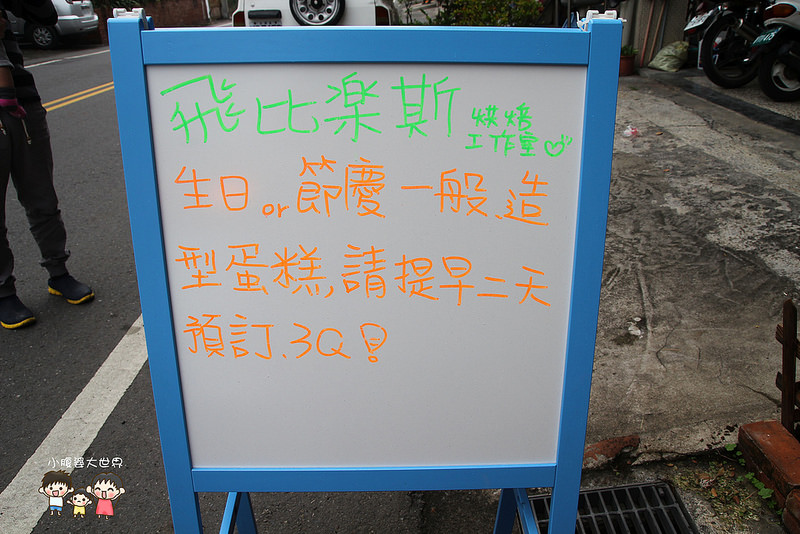 飛比楽斯 烘焙
工作室
生日or節慶一般、造
型蛋糕,請提早二天
預訂、3Q!
小腹婆大世界